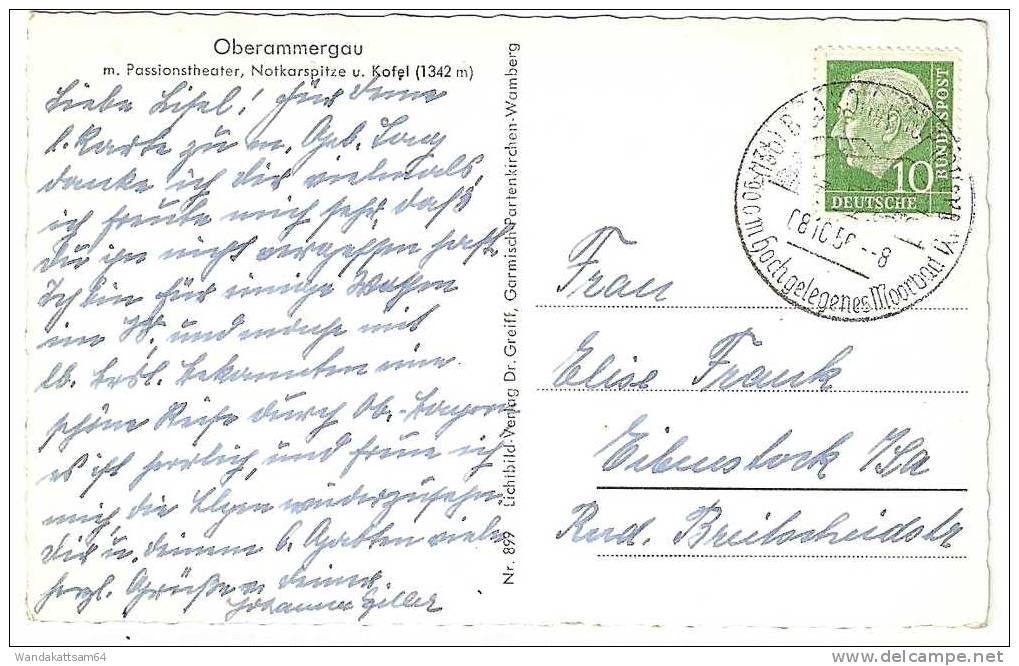 Oberammergau
m. Passionstheater, Notkarspitze u. Kofel (1342 m)
Liebe Lisel! Für Deine
l. Karte zu m. Geb. Tag
danke ich dir vielmals,
ich freute mich sehr, daß
Du ihn nicht vergessen hast.
Ich bin für einige Wochen
im W. und mache mit
lb. Bekannten eine
schöne Reise durch Ob.-Bayern
es ist herrlich, und freue ich
mich, die Alpen wiederzusehen.
Dir u. Deinem l. Gatten viele
herzl. Grüße v. Deiner
Johanna
Nr. 899 Lichtbild-Verlag Dr. Greiff, Garmisch-Partenkirchen-Wamberg
10
DEUTSCHE
BUNDESPOST
900 m hochgelegenes Moorbad
08.10.56 --8
Frau
Elise Frank
Eibenstock i/Sa
Rud. Breitscheidstr
Wandakattsam64
www.delcampe.net